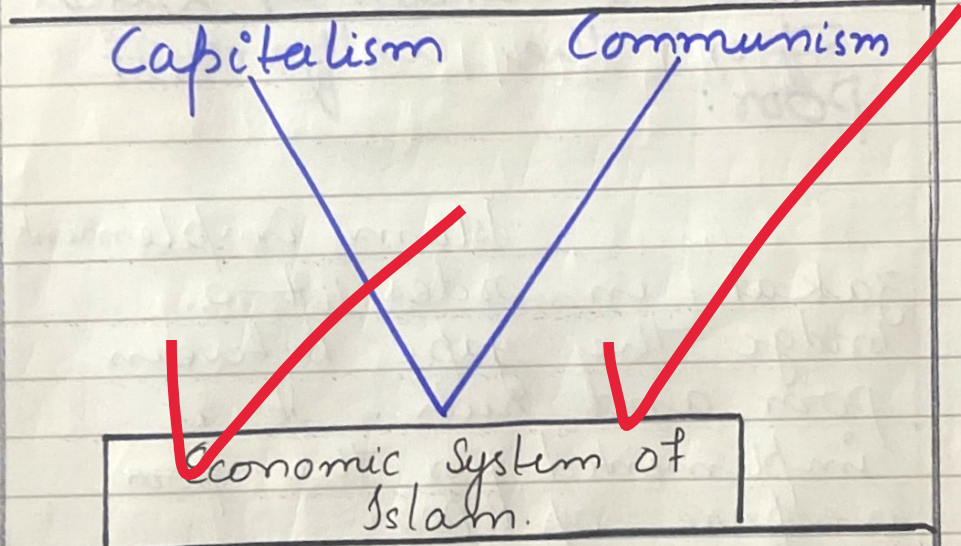 Capitalism Communism
Economic System of
Islam.